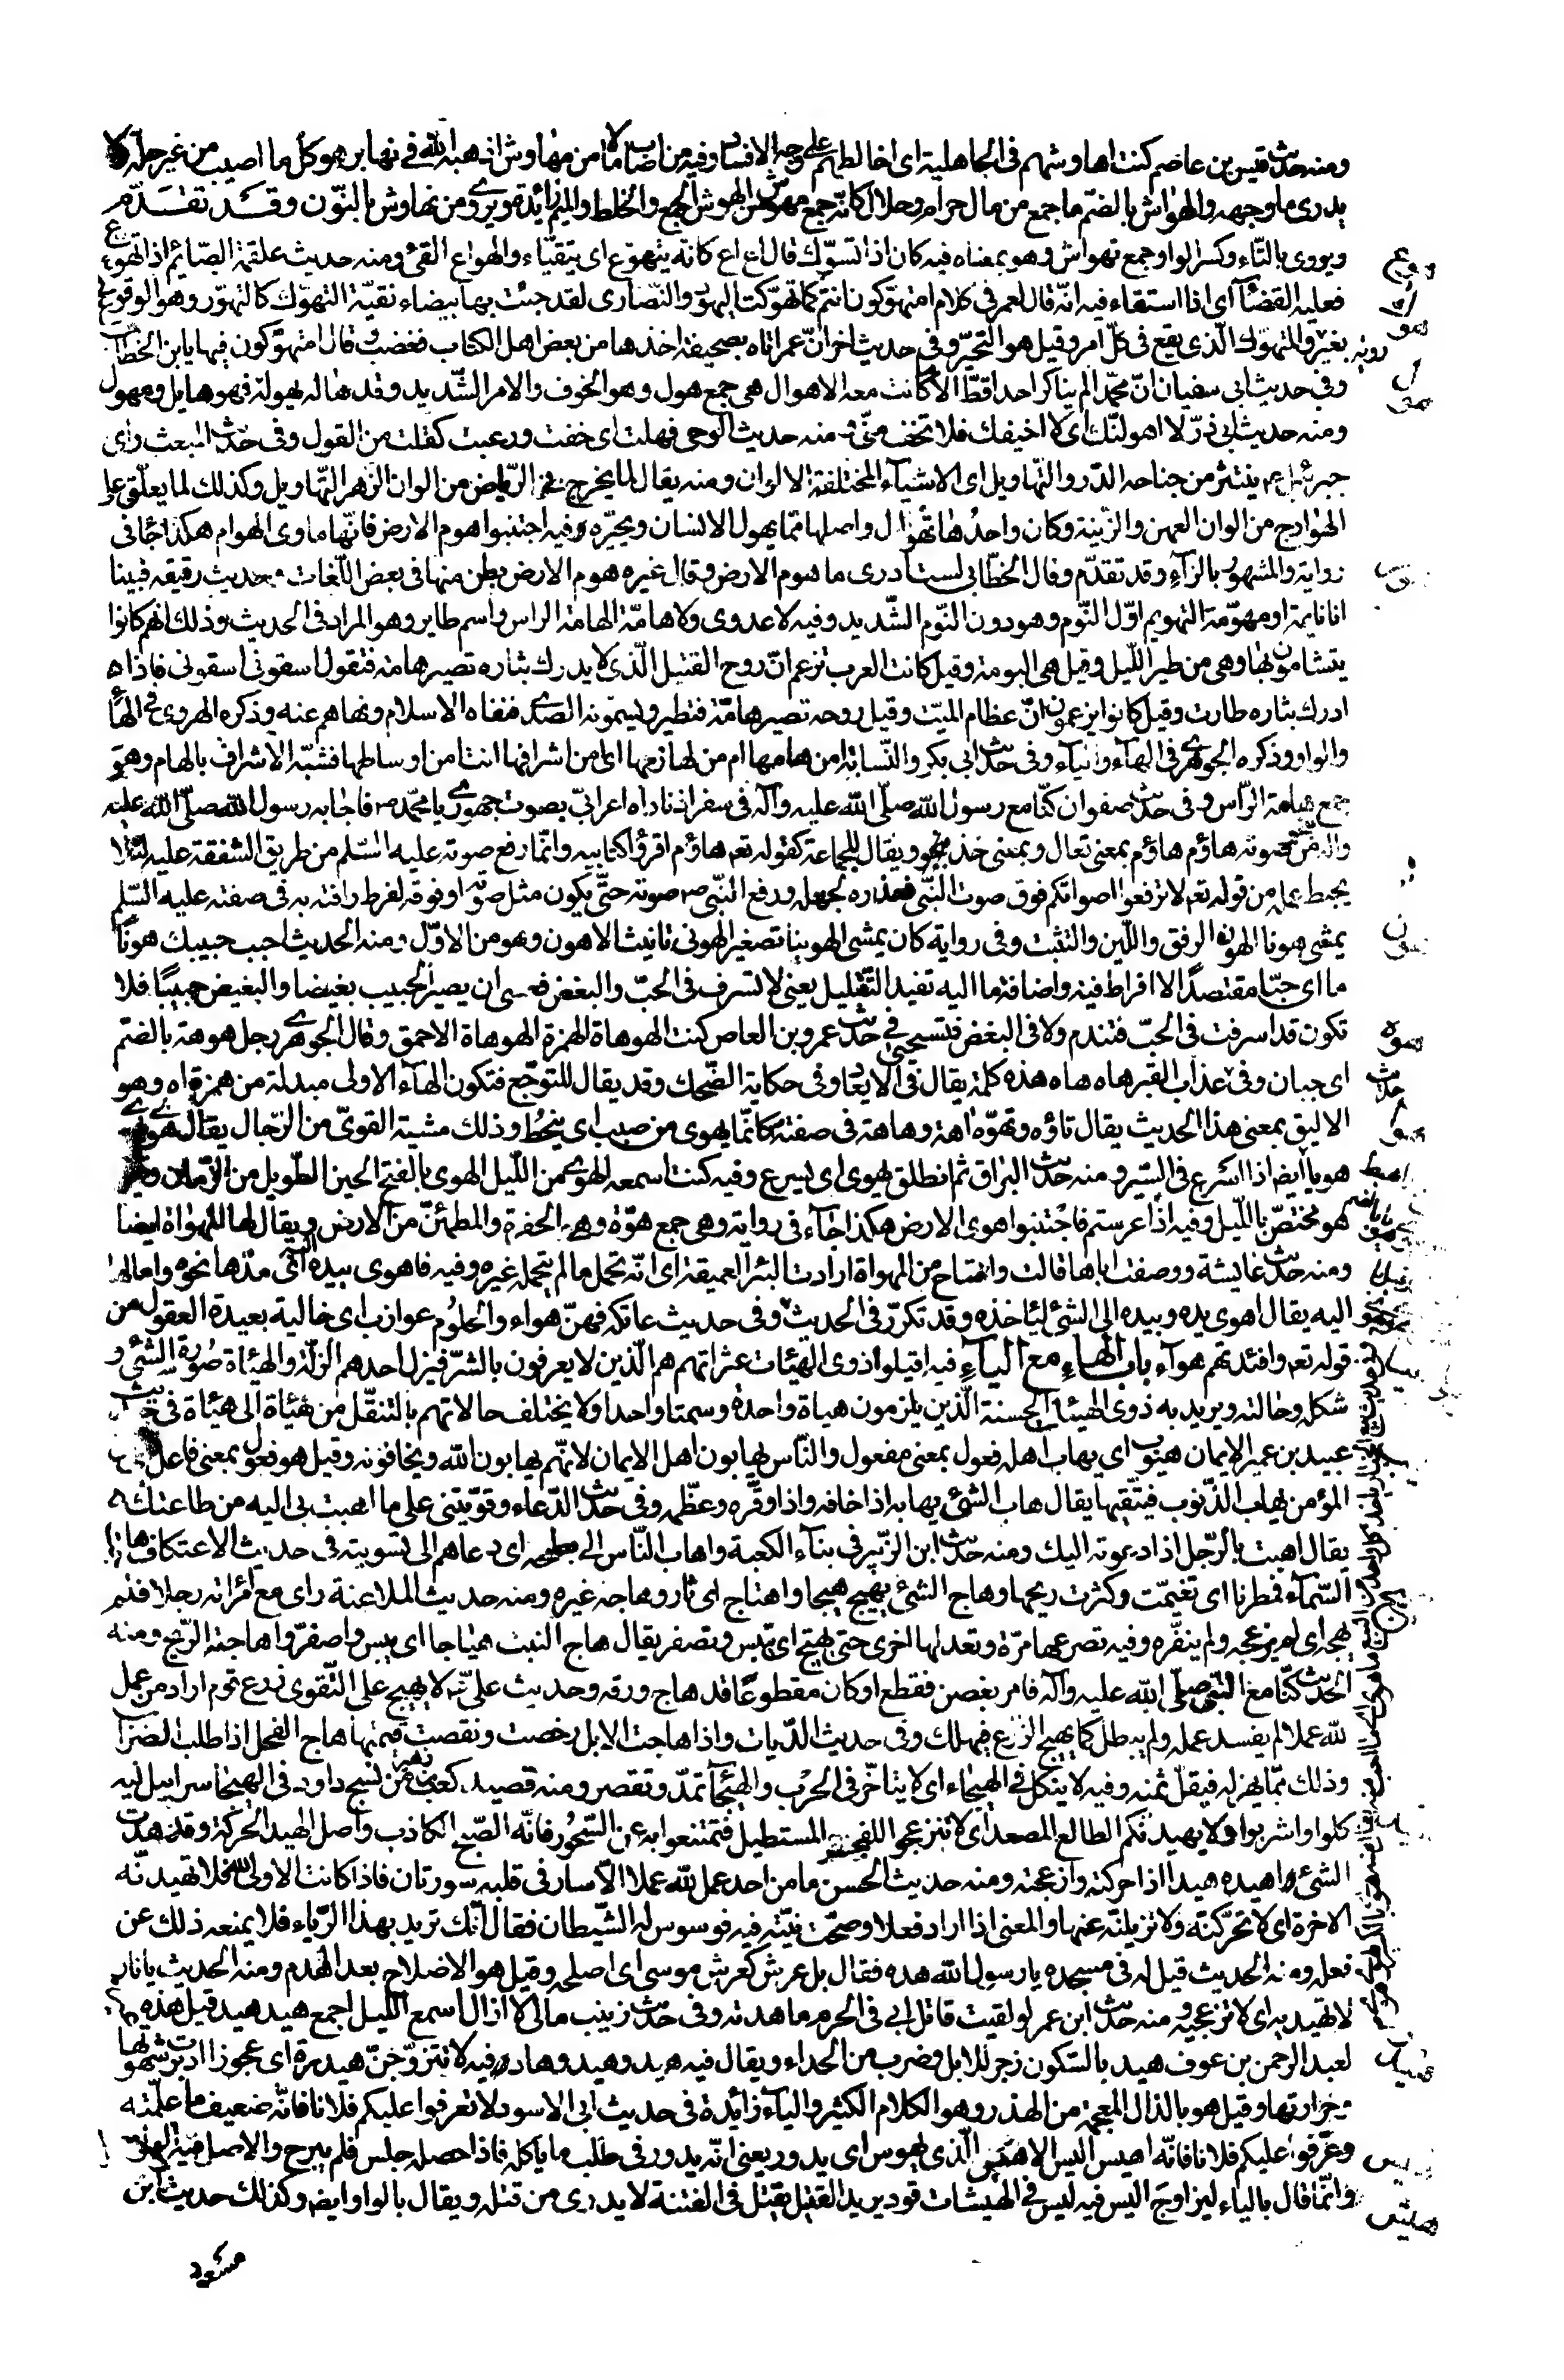 ومنه حديث قيس بن عاصم كنت اهاوشهم فى الجاهلية اى اخالطهم على وجه الافساد وفيه من اصاب مالا من مهاوش اذهبه الله فى نهابر هو كل ما اصيب من غير حله ولا
يدرى ما وجهه والهواش بالضم ما جمع من مال حرام وحلال كانه جمع مهوش من الهوش الجمع والخلط والميم زائدة ويروى من نهاوش بالنون وقد تقدم
ويروى بالتاء وكسر الواو جمع تهواش وهو بمعناه فيه كان اذا تسوك قال اع اع كانه يتهوع اى يتقياء والهواع القئ ومنه حديث علقمة الصائم اذا تهوع
فعليه القضاء اى اذا استقاء فيه انه قال لعمر فى كلام امتهوكون انتم كما تهوكت اليهود والنصارى لقد جئت بها بيضاء نقية التهوك كالتهور وهو الوقوع
بغير روية والمتهوك الذى يقع فى كل امر وقيل هو التحير وفى حديث اخر ان عمر اتاه بصحيفة اخذها من بعض اهل الكتاب فغضب وقال امتهوكون فيها يابن الخطاب
وفى حديث ابى سفيان ان محمدا لم يناكر احدا قط الا كانت معه الاهوال هى جمع هول وهو الخوف والامر الشديد وقد هاله يهوله فهو هايل ومهول
ومنه حديث ابى ذر لا اهولنك اى لا اخيفك فلا تخف منى ومنه حديث الوحى فهلت اى خفت ورعبت كقلت من القول وفى حديث المبعث راى
جبرئيل ينتثر من جناحه الدر والتهاويل اى الاشياء المختلفة الالوان ومنه يقال لما يخرج فى الرياض من الوان الزهر التهاويل وكذلك لما يعلق على
الهوادج من الوان العهن والزينة وكان واحدها تهوال واصلها مما يهول الانسان ويحيره وفيه اجتنبوا هوم الارض فانها ماوى الهوام هكذا جا فى
رواية والمشهور بالزاء وقد تقدم وقال الخطابى لست ادرى ما هوم الارض وقال غيره هوم الارض بطن منها فى بعض اللغات وحديث رقيقة فبينا
انا نايمة او مهومة التهويم اول النوم وهو دون النوم الشديد وفيه لا عدوى ولا هامة الهامة الراس واسم طاير وهو المراد فى الحديث وذلك انهم كانوا
يتشامون بها وهى من طير الليل وقيل هى البومة وقيل كانت العرب تزعم ان روح القتيل الذى لا يدرك بثاره تصير هامة فتقول اسقونى اسقونى فاذا
ادرك بثاره طارت وقيل كانوا يزعمون ان عظام الميت وقيل روحه تصير هامة فتطير ويسمونه الصدى فنفاه الاسلام ونهاهم عنه وذكره الهروى فى الهاء
والواو وذكره الجوهرى فى الهاء والياء وفى حديث ابى بكر والنسابة امن هامها ام من لهازمها اى من اشرافها انت ام من اوساطها فشبه الاشراف بالهام وهو
جمع هامة الراس وفى حديث صفوان كنا مع رسول الله صلى الله عليه وآله فى سفر اذ ناداه اعرابى بصوت جهورى يا محمد فاجابه رسول الله صلى الله عليه
وآله نحو من صوته هاؤم هاؤم بمعنى تعال وبمعنى خذ ويقال للجماعة كقوله تعم هاؤم اقرؤا كتابيه وانما رفع صوته عليه السلم من طريق الشفقة عليه لئلا
يحبط عمله من قوله تعم لا ترفعوا اصواتكم فوق صوت النبى فعذره لجهله ورفع النبى صوته حتى يكون مثل صوته او فوقه لفرط رافته به فى صفته عليه السلم
يمشى هونا الهون الرفق واللين والتثبت وفى رواية كان يمشى الهوينا تصغير الهونى تانيث الاهون وهو من الاول ومنه الحديث احبب حبيبك هونا
ما اى حبا مقتصدا لا افراط فيه واضافة ما اليه تفيد التقليل يعنى لا تسرف فى الحب والبغض فعسى ان يصير الحبيب بغيضا والبغيض حبيبا فلا
تكون قد اسرفت فى الحب فتندم ولا فى البغض فتستحيى فى حديث عمرو بن العاص كنت الهوهاة الهمزة الهوهاة الاحمق وقال الجوهرى رجل هوهة بالضم
اى جبان وفى عذاب القبر هاه هاه هذه كلمة يقال فى الايعاد وفى حكاية الضحك وقد يقال للتوجع فتكون الهاء الاولى مبدلة من همزة اه وهو
الاليق بمعنى هذا الحديث يقال تاوه وتهوه اهة وهاهة فى صفته كانما يهوى من صبب اى ينحط وذلك مشية القوى من الرجال يقال هوى
هويا ايضا اذا اسرع فى السير ومنه حديث البراق ثم انطلق يهوى اى يسرع وفيه كنت اسمعه الهوى من الليل الهوى بالفتح الحين الطويل من الزمان وقيل
هو مختص بالليل وفيه اذا عرستم فاجتنبوا هوى الارض هكذا جاء فى رواية وهى جمع هوة وهى الحفرة والمطمئن من الارض ويقال لها المهواة ايضا
ومنه حديث عايشة ووصفت اباها قالت وامتاح من المهواة ارادت البئر العميقة اى انه تحمل ما لم يتحمله غيره وفيه فاهوى بيده اليه اى مدها نحوه وامالها
اليه يقال اهوى يده وبيده الى الشئ لياخذه وقد تكرر فى الحديث وفى حديث عاتكة فهن هواء والحلوم عوازب اى خالية بعيدة العقول من
قوله تعم وافئدتهم هوآء باب الهاء مع الياء فيه اقيلوا ذوى الهيئات عثراتهم هم الذين لا يعرفون بالشر فيزل احدهم الزلة والهيئاة صورة الشئ و
شكله وحالته ويريد به ذوى الهيئة الحسنة الذين يلزمون هياة واحدة وسمتا واحدا ولا يختلف حالاتهم بالتنقل من هيئاة الى هيئاة فى حديث
عبيد بن عمير الايمان هيوب اى يهاب اهله فعول بمعنى مفعول والناس يهابون اهل الايمان لانهم يهابون الله ويخافونه وقيل هو فعول بمعنى فاعل
المؤمن يهاب الذنوب فيتقيها يقال هاب الشئ يهابه اذا خافه واذا وقره وعظمه وفى حديث الدعاء وقويتنى على ما اهبت بى اليه من طاعتك
يقال اهبت بالرجل اذا دعوته اليك ومنه حديث ابن الزبير فى بناء الكعبة واهاب الناس الى بطحه اى دعاهم الى تسويته فى حديث الاعتكاف هاجت
السماء فمطرنا اى تغيمت وكثرت ريحها وهاج الشئ يهيج هيجا واهتاج اى ثار وهاجه غيره ومنه حديث الملاعنة راى مع امراته رجلا فلم
يهجه اى لم يزعجه ولم ينفره وفيه تصرعها مرة وتعدلها اخرى حتى تهيج اى تيبس وتصفر يقال هاج النبت هياجا اى يبس واصفر واهاجته الريح ومنه
الحديث كنا مع النبى صلى الله عليه وآله فامر بغصن فقطع او كان مقطوعا قد هاج ورقه وحديث على لا يهيج على التقوى زرع قوم اراد من عمل
لله عملا لم يفسد عمله ولم يبطل كما يهيج الزرع فيهلك وفى حديث الديات واذا هاجت الابل رخصت ونقصت قيمتها هاج الفحل اذا طلب الضراب
وذلك مما يهزله فيقل ثمنه وفيه لا ينكل فى الهيجاء اى لا يتاخر فى الحرب والهيجآ تمد وتقصر ومنه قصيد كعب بن زهير من نسج داود فى الهيجا سرابيل فيه
كلوا واشربوا ولا يهيدنكم الطالع المصعد اى لا تنزعجوا للفجر المستطيل فتمتنعوا به عن السحور فانه الصبح الكاذب واصل الهيد الحركة وقد هدت
الشئ اهيده هيدا اذا حركته وازعجته ومنه حديث الحسن ما من احد عمل لله عملا الا سار فى قلبه سورتان فاذا كانت الاولى لله فلا تهيدنه
الاخرة اى لا تحركنه ولا تزيلنه عنها والمعنى اذا اراد فعلا وصحت نيته فيه فوسوس له الشيطان فقال انك تريد بهذا الرياء فلا يمنعه ذلك عن
فعله ومنه الحديث قيل له فى مسجده يا رسول الله هده فقال بل عرش كعرش موسى اى اصلحه وقيل هو الاصلاح بعد الهدم ومنه الحديث يا نار
لا تهيديه اى لا تزعجيه ومنه حديث ابن عمر لو لقيت قاتل ابى فى الحرم ما هدته وفى حديث زينب مالى لا ازال اسمع الليل اجمع هيد هيد قيل هذه
لعبد الرحمن بن عوف هيد بالسكون زجر للابل وضرب من الحداء ويقال فيه هيد وهيد وهاد وفيه لا تتزوجن هيدرة اى عجوزا ادبرت شهوتها
وحرارتها وقيل هو بالذال المعجمة من الهذر وهو الكلام الكثير والياء زائدة فى حديث ابى الاسود لا تعرفوا عليكم فلانا فانه ضعيف ما علمته
وعرفوا عليكم فلانا فانه اهيس اليس الاهيس الذى يهوس اى يدور يعنى انه يدور فى طلب ما ياكله فاذا حصله جلس فلم يبرح والاصل فيه الواو
وانما قال بالياء ليزاوج اليس فيه ليس فى الهيشات قود يريد القتيل يقتل فى الفتنة لا يدرى من قتله ويقال بالواو ايضا وكذلك حديث ابن
مسعود
هوع
هوك
هول
هوم
هون
هوه
هوا
هيد
هيس
هيش